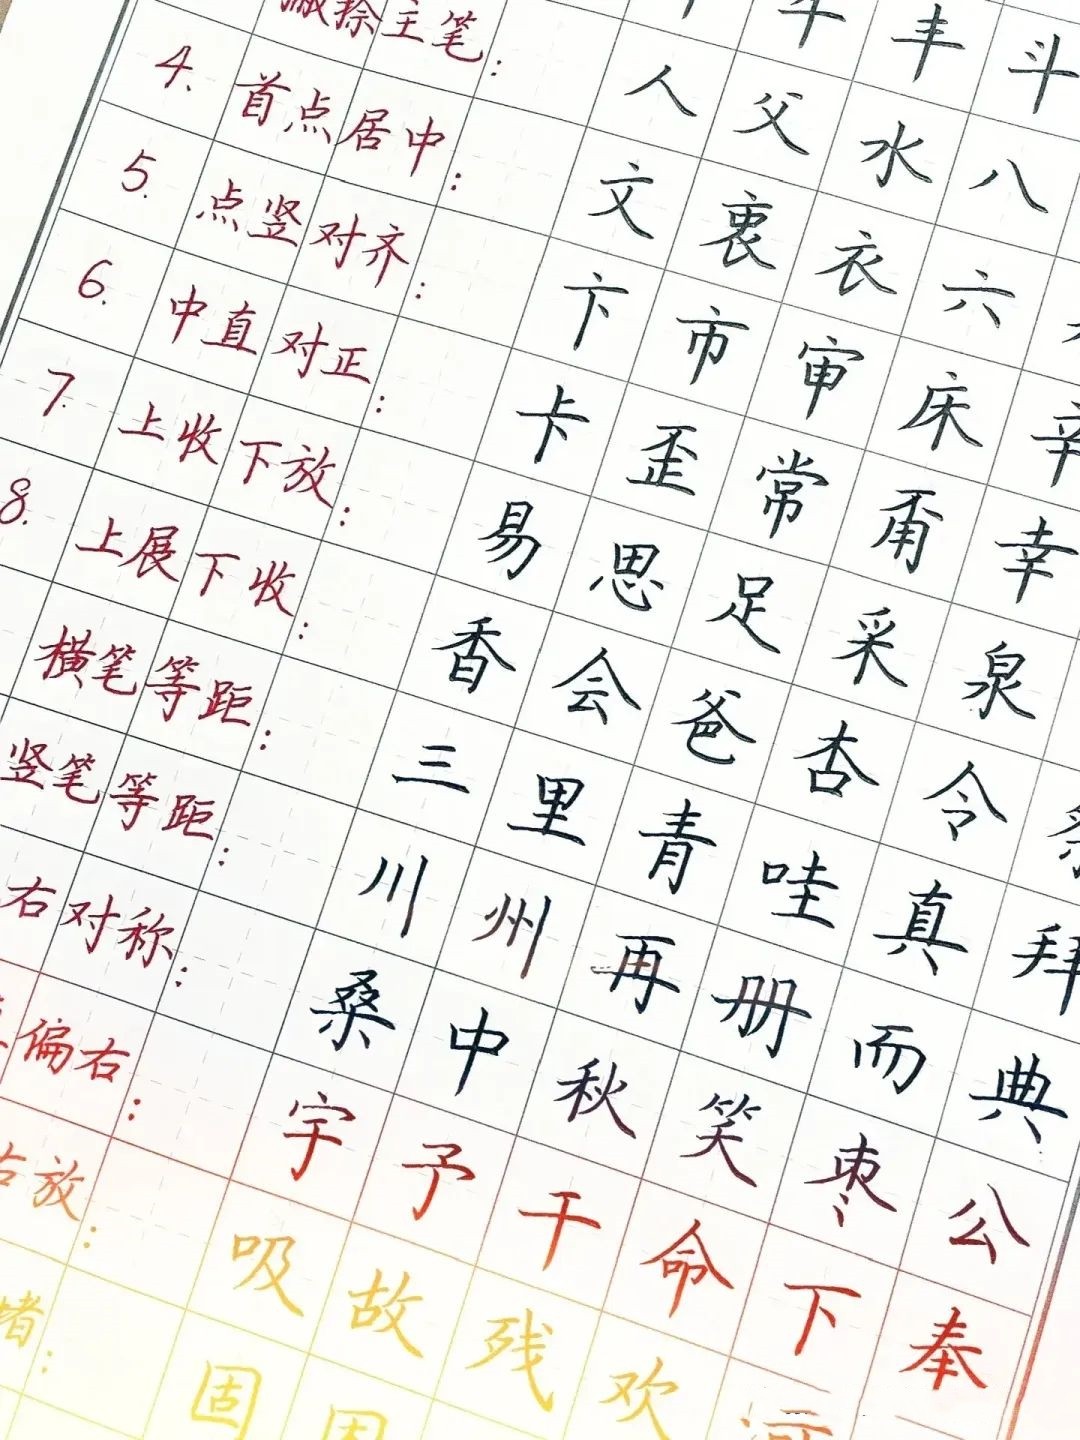 丰 斗
撇捺主笔: 人 父 水 八
4. 首点居中: 文 衷 衣 六
5. 点竖对齐: 卞 市 审 床 辛
6. 中直对正: 卡 歪 常 甭 幸
7. 上收下放: 易 思 足 采 泉
8. 上展下收: 香 会 爸 杏 令
横笔等距: 三 里 青 哇 真 拜
竖笔等距: 川 州 再 册 而 典
右对称: 桑 中 秋 笑 枣 公
偏右: 宇 予 干 命 下 奉
右放: 吸 故 残 欢
堵: 固